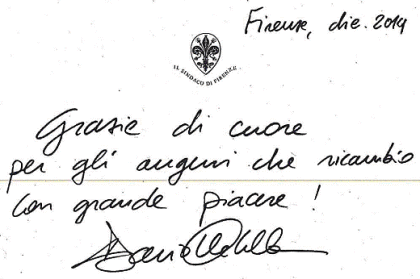 Firenze, dic. 2014
IL SINDACO DI FIRENZE
Grazie di cuore
per gli auguri che ricambio
con grande piacere!